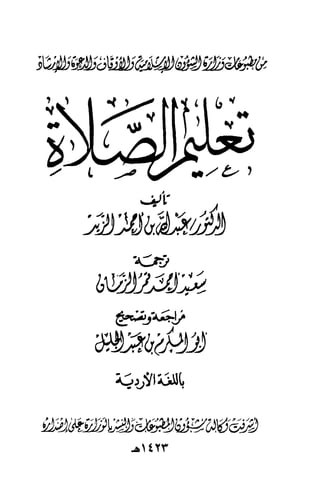 من مطبوعات وزارة الشؤون الإسلامية والأوقاف والدعوة والإرشاد
تعليم الصلاة
تأليف
الدكتور/ عبد الله بن أحمد الزيد
ترجمة
سعيد أحمد قمر الزمان
مراجعة وتصحيح
أبو المكرم بن عبد الجليل
باللغة الأردية
أشرفت وكالة شؤون المطبوعات والنشر بالوزارة على إصداره
١٤٢٣هـ